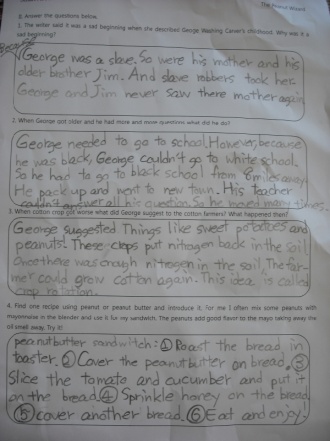 The Peanut Wizard
B. Answer the questions below.
1. The writer said it was a sad beginning when she described George Washing Carver's childhood. Why was it a
sad beginning?
George was a slave. So were his mother and his
older brother Jim. And slave robbers took her.
George and Jim never saw there mother again.
2. When George got older and he had more and more questions what did he do?
George needed to go to school. However, because
he was black, George couldn't go to white school.
So he had to go to black school from 8 miles away.
He pack up and went to new town. His teacher
couldn't answer all his question. So he moved many times.
3. When cotton crop got worse what did George suggest to the cotton farmers? What happened then?
George suggested Things like sweet potatoes and
peanuts. These crops put nitrogen back in the soil.
Once there was enough nitrogen in the soil, The far-
mer could grow cotton again. This idea is called
crop rotation.
4. Find one recipe using peanut or peanut butter and introduce it. For me I often mix some peanuts with
mayonnaise in the blender and use it for my sandwich. The peanuts add good flavor to the mayo taking away the
oil smell away. Try it!
peanutbutter sandwitch: ① Roast the bread in
toaster. ② Cover the peanutbutter on bread. ③
Slice the tomato and cucumber and put it
on the bread. ④ Sprinkle honey on the bread.
⑤ cover another bread. ⑥ Eat and enjoy!